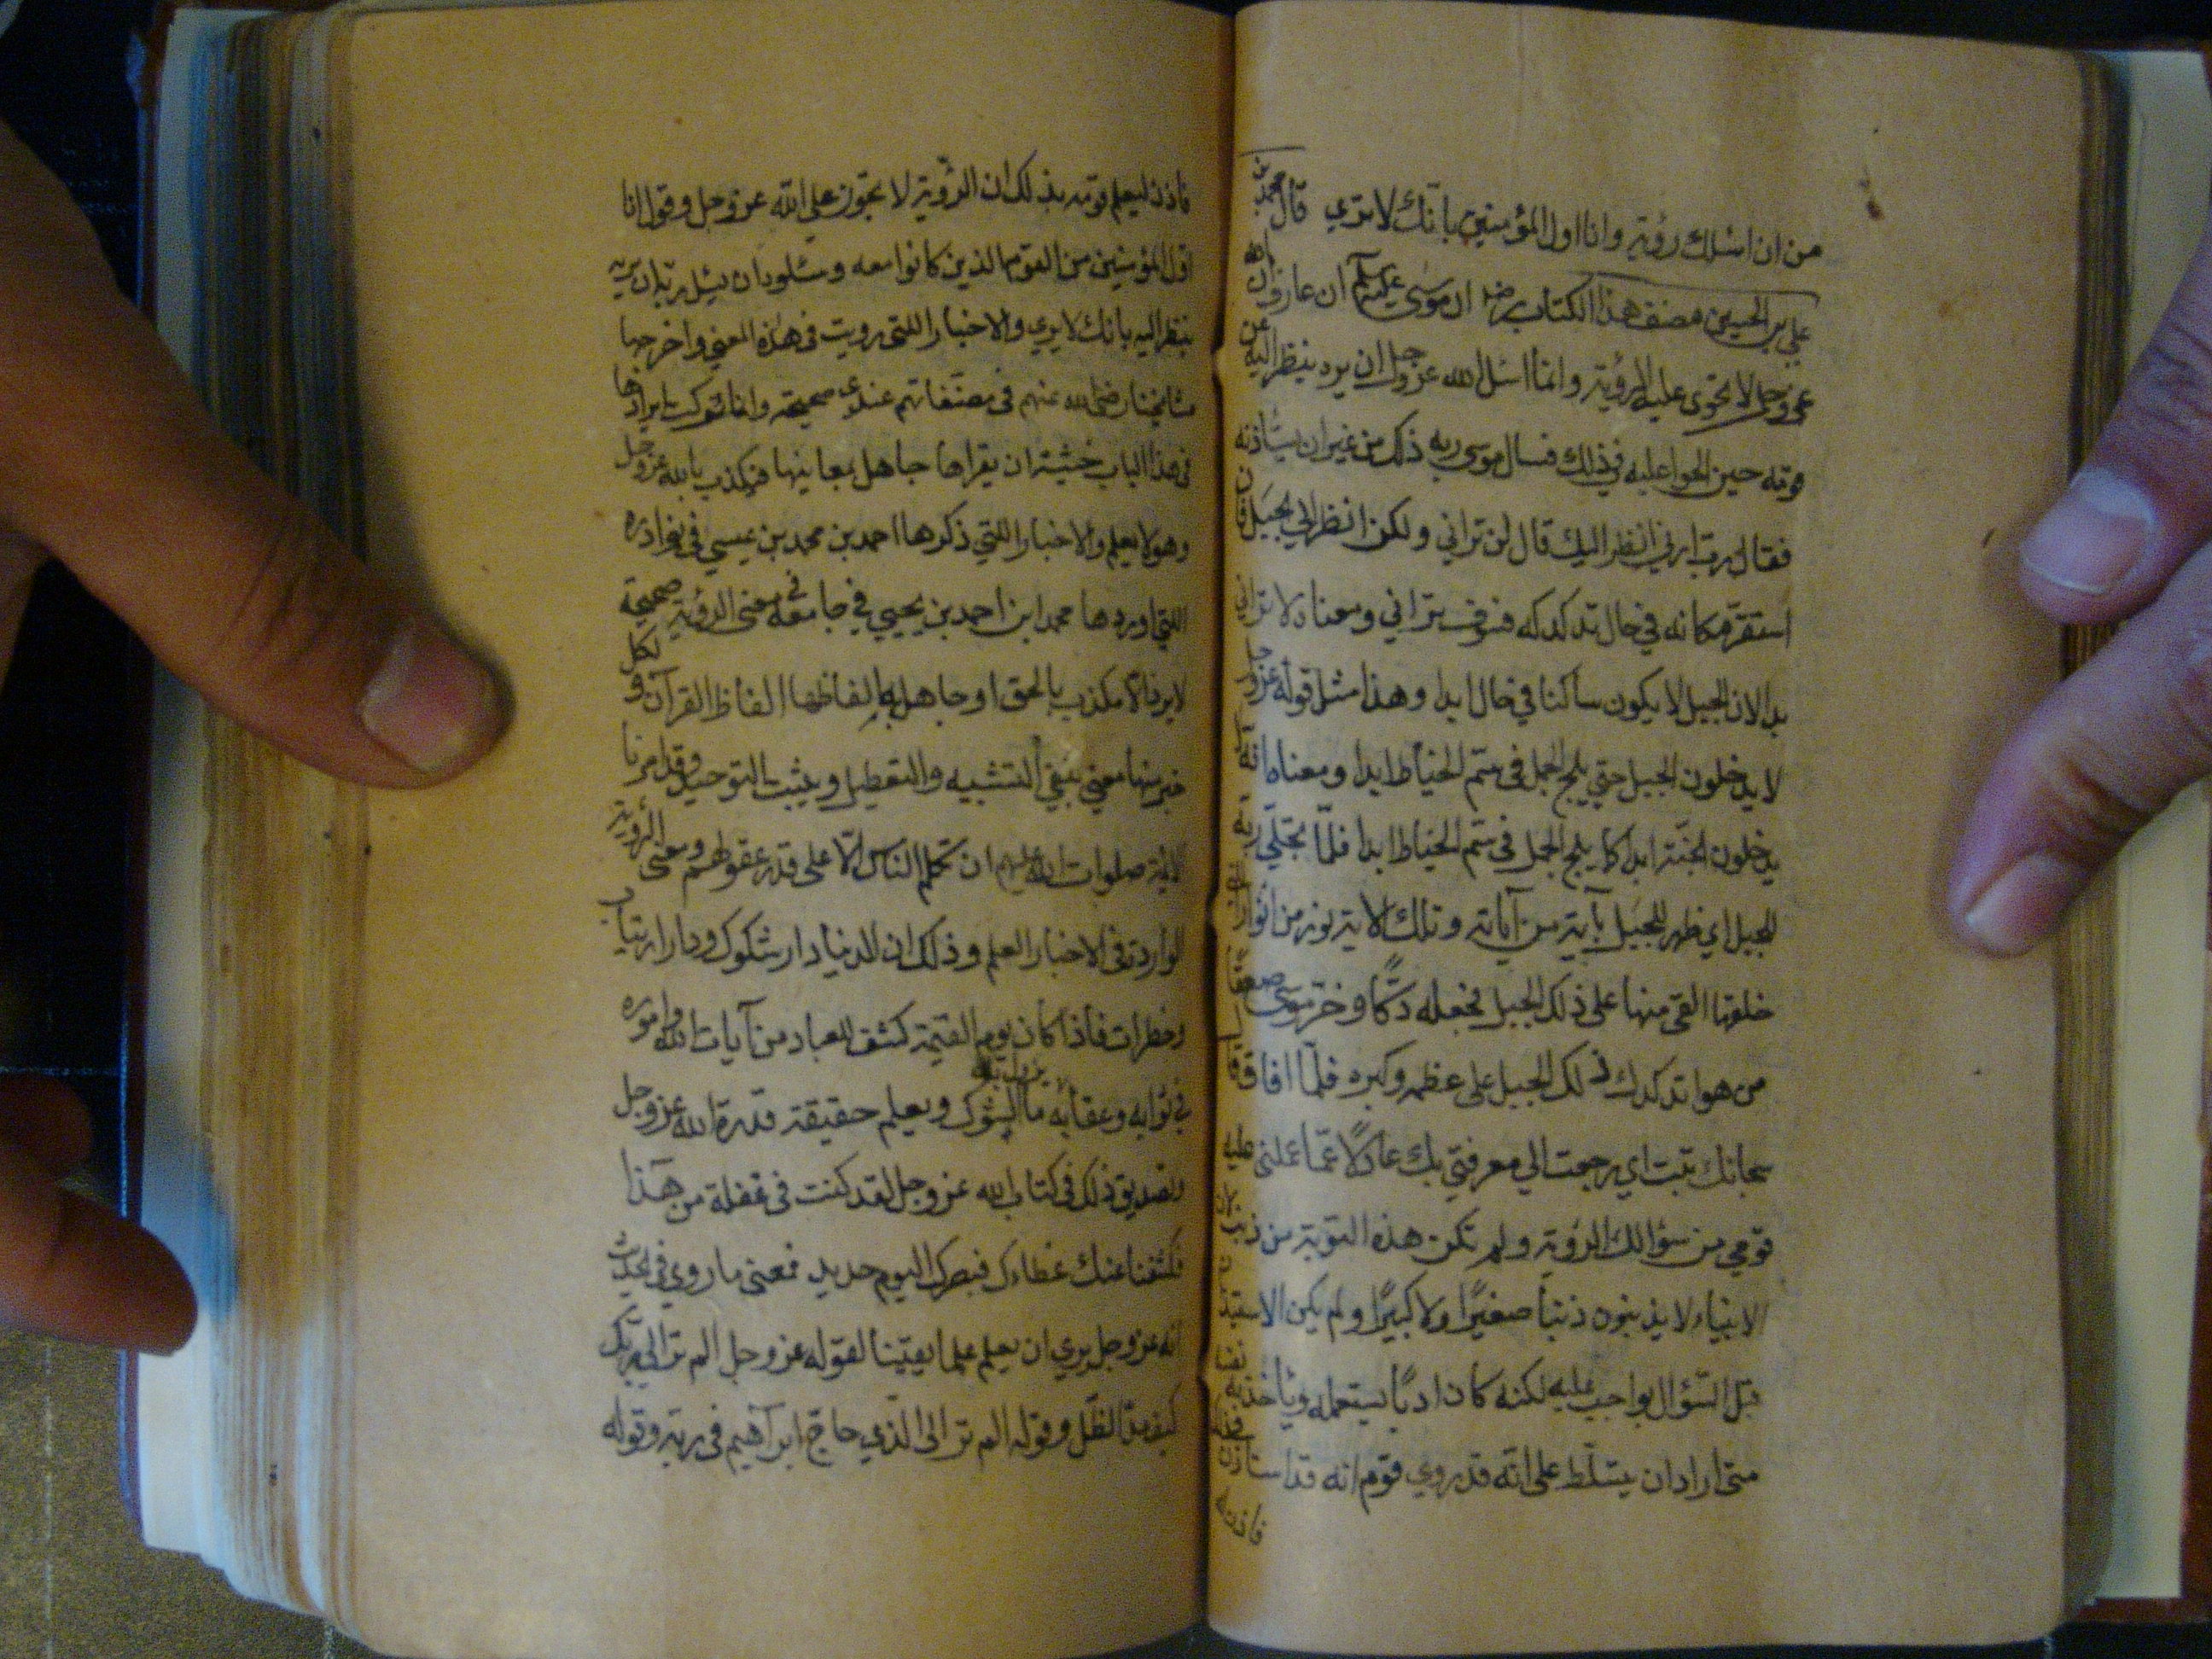 من ان اسئلك رؤية وانا اول المؤمنين بانك لا تري قال محمد بن
علي بن الحسين مصنف هذا الكتاب رضه ان موسى عليه السلم ان عارفا
عز وجل لا تجوز عليه الرؤية وانما اسئل الله عز وجل ان يريه ينظر اليه عن
قومه حين الحوا عليه في ذلك فسال موسى ربه ذلك من غير ان يستأذنه
فقال رب ارني انظر اليك قال لن تراني ولكن انظر الي الجبل فان
استقر مكانه في حال تدكدكه فسوف تراني ومعناه لا تراني
بدا لان الجبل لا يكون ساكنا في حال ابدا وهذا مثل قوله عز وجل
لا يدخلون الجبل حتي يلج الجمل في سم الخياط ابدا ومعناه انه
يدخلون الجنة ابدا كما يلج الجمل في سم الخياط ابدا فلما تجلي ربه
للجبل اي ظهر للجبل بآية من آياته وتلك الاية نور من انوار
خلقها القى منها على ذلك الجبل فجعله دكا وخر موسى صعقا
من هوا تدكدك ذلك الجبل على عظمه وكبره فلما افاق قال
سبحانك تبت اي رجعت الي معرفتي بك عادلا عما حملني عليه
قومي من سؤالك الرؤية ولم تكن هذه التوبة من ذنب لان
الانبياء لا يذنبون ذنبا صغيرا ولا كبيرا ولم يكن الاستيذان
قبل السؤال بواجب عليه لكنه كان ادبا يستعمله ويأخذ به نفسه
متى اراد ان يسئله على انه قد روي قوم انه قد استاذن
فاذن
فاذن ليعلم قومه بذلك ان الرؤية لا تجوز على الله عز وجل وقوله انا
اول المؤمنين من القوم الذين كانوا معه وسئلوه ان يسئل ربه ان يريه
ينظر اليه بانك لا يري والاخبار اللتى رويت فى هذه المعني واخرجها
مشايخنا رضي الله عنهم فى مصنفاتهم عندى صحيحة وانما تركت ايرادها
فى هذا الباب خشية ان يقراها جاهل بمعاينها فيكذب بالله عز وجل
وهو لا يعلم والاخبار اللتي ذكرها احمد بن محمد بن عيسي في نوادره
اللتي اوردها محمد ابن احمد بن يحيي في جامعه في معنى الرؤية صحيحة
لا يردها الا مكذب بالحق او جاهل به الفاظها الفاظ القرآن و لكل
خبر منها معني ينفي التشبيه والتعطيل ويثبت التوحيد وقد امرنا
الائمة صلوات الله عليهم ان نكلم الناس الا على قدر عقولهم ومعنى الرؤية
الواردة فى الاخبار العلم وذلك ان الدنيا دار شكوك ودار ارتياب
وخطرات فاذا كان يوم القيمة كشف للعباد من آيات الله واموره
في ثوابه وعقابه ما يزول به الشوك ويعلم حقيقة قدرة الله عز وجل
وتصديق ذلك فى كتاب الله عز وجل لقد كنت فى غفلة من هذا
فكشفنا عنك غطاءك فبصرك اليوم حديد فمعنى ما روي في الحديث
انه عز وجل يري ان يعلم علما يقينا لقوله عز وجل الم تر الي ربك
كيف مد الظل وقوله الم تر الى الذي حاج ابرآهيم فى ربه وقوله